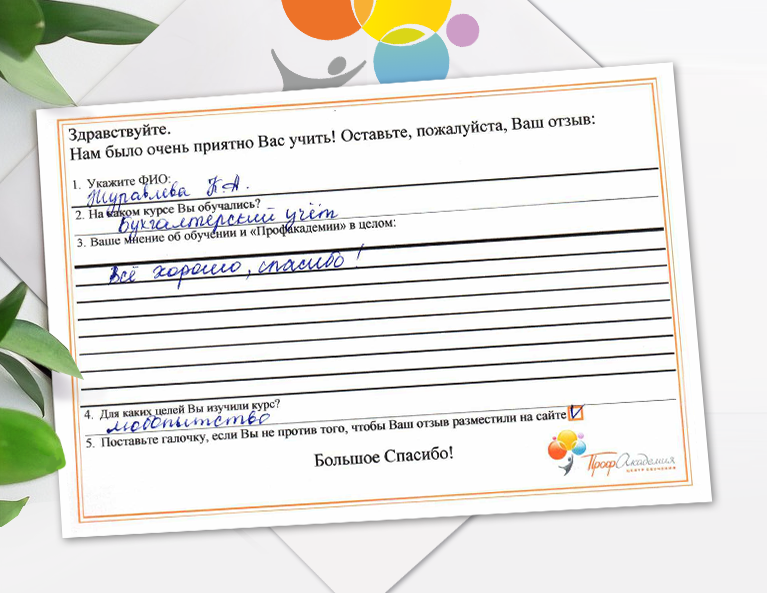 Здравствуйте.
Нам было очень приятно Вас учить! Оставьте, пожалуйста, Ваш отзыв:
1. Укажите ФИО:
Журавлёва Т.А.
2. На каком курсе Вы обучались?
Бухгалтерский учёт
3. Ваше мнение об обучении и «Профакадемии» в целом:
Всё хорошо, спасибо!
4. Для каких целей Вы изучили курс?
любопытство
5. Поставьте галочку, если Вы не против того, чтобы Ваш отзыв разместили на сайте
Большое Спасибо!
ПрофАкадемия